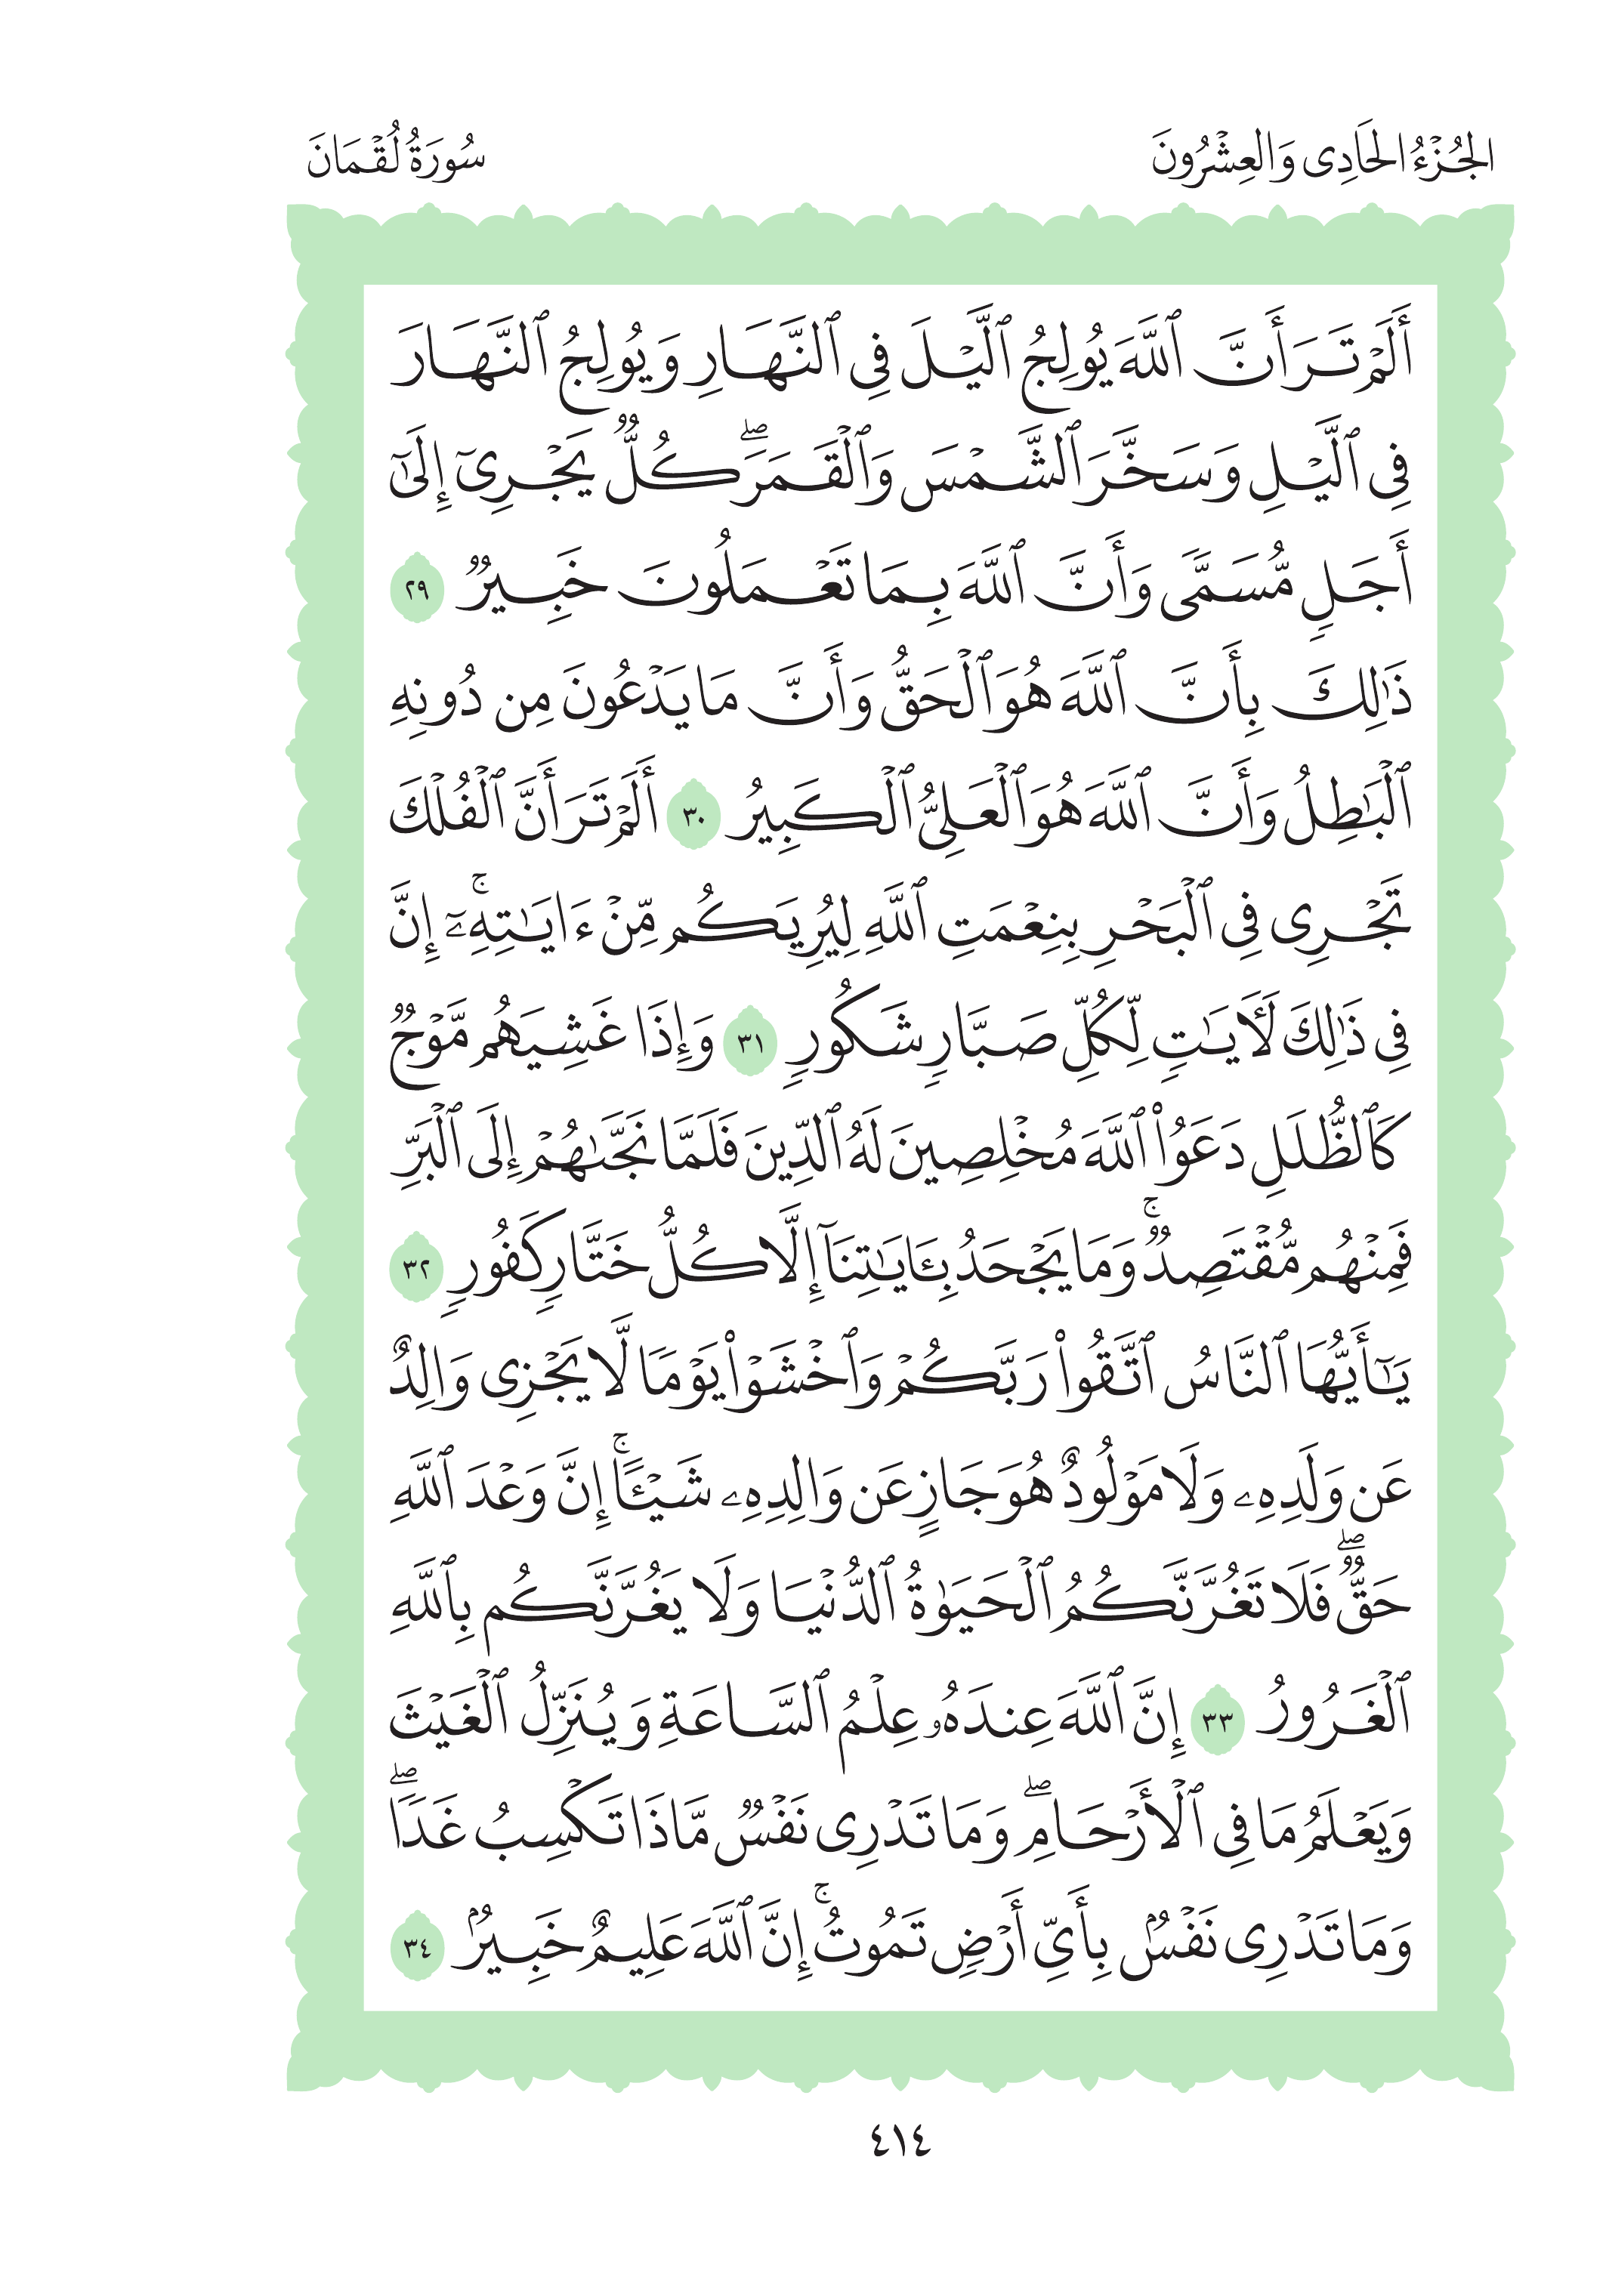 الجُزْءُ الحَادِى وَالعِشْرُونَ
سُورَةُ لُقْمَانَ
أَلَمْ تَرَ أَنَّ ٱللَّهَ يُولِجُ ٱلَّيْلَ فِى ٱلنَّهَارِ وَيُولِجُ ٱلنَّهَارَ
فِى ٱلَّيْلِ وَسَخَّرَ ٱلشَّمْسَ وَٱلْقَمَرَۖ كُلٌّ يَجْرِىٓ إِلَىٰٓ
أَجَلٍ مُّسَمًّى وَأَنَّ ٱللَّهَ بِمَا تَعْمَلُونَ خَبِيرٌ ٢٩
ذَٰلِكَ بِأَنَّ ٱللَّهَ هُوَ ٱلْحَقُّ وَأَنَّ مَا يَدْعُونَ مِن دُونِهِ
ٱلْبَٰطِلُ وَأَنَّ ٱللَّهَ هُوَ ٱلْعَلِىُّ ٱلْكَبِيرُ ٣٠ أَلَمْ تَرَ أَنَّ ٱلْفُلْكَ
تَجْرِى فِى ٱلْبَحْرِ بِنِعْمَتِ ٱللَّهِ لِيُرِيَكُم مِّنْ ءَايَٰتِهِۦٓۚ إِنَّ
فِى ذَٰلِكَ لَءَايَٰتٍ لِّكُلِّ صَبَّارٍ شَكُورٍ ٣١ وَإِذَا غَشِيَهُم مَّوْجٌ
كَٱلظُّلَلِ دَعَوُا۟ ٱللَّهَ مُخْلِصِينَ لَهُ ٱلدِّينَ فَلَمَّا نَجَّىٰهُمْ إِلَى ٱلْبَرِّ
فَمِنْهُم مُّقْتَصِدٌۚ وَمَا يَجْحَدُ بِـَٔايَٰتِنَآ إِلَّا كُلُّ خَتَّارٍ كَفُورٍ ٣٢
يَٰٓأَيُّهَا ٱلنَّاسُ ٱتَّقُوا۟ رَبَّكُمْ وَٱخْشَوْا۟ يَوْمًا لَّا يَجْزِى وَالِدٌ
عَن وَلَدِهِۦ وَلَا مَوْلُودٌ هُوَ جَازٍ عَن وَالِدِهِۦ شَيْـًٔاۚ إِنَّ وَعْدَ ٱللَّهِ
حَقٌّۖ فَلَا تَغُرَّنَّكُمُ ٱلْحَيَوٰةُ ٱلدُّنْيَا وَلَا يَغُرَّنَّكُم بِٱللَّهِ
ٱلْغَرُورُ ٣٣ إِنَّ ٱللَّهَ عِندَهُۥ عِلْمُ ٱلسَّاعَةِ وَيُنَزِّلُ ٱلْغَيْثَ
وَيَعْلَمُ مَا فِى ٱلْأَرْحَامِۖ وَمَا تَدْرِى نَفْسٌ مَّاذَا تَكْسِبُ غَدًاۖ
وَمَا تَدْرِى نَفْسٌۢ بِأَىِّ أَرْضٍ تَمُوتُۚ إِنَّ ٱللَّهَ عَلِيمٌ خَبِيرٌۢ ٣٤
٤١٤